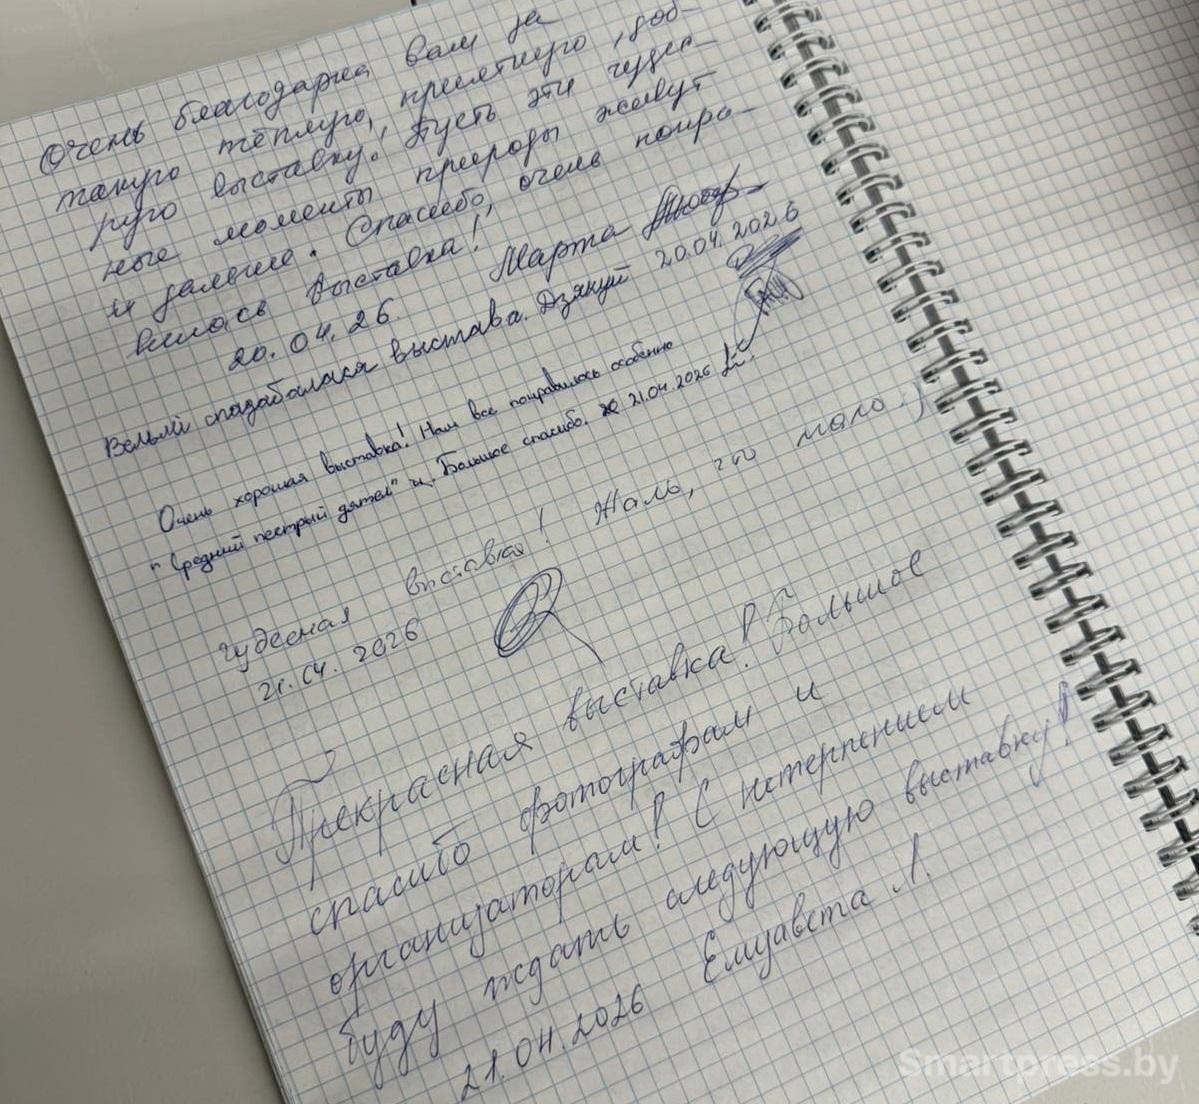 Очень благодарна вам за
такую тёплую, приятную, доб-
рую выставку. Пусть эти чудес-
ные моменты природы живут
и дальше. Спасибо, очень понра-
вилась выставка!
20.04.26. Марта
Вельмі спадабалася выстава. Дзякуй 20.04.2026
Очень хорошая выставка! Нам все понравилось особенно
"Средний пестрый дятел" Большое спасибо. 21.04.2026
Чудесная выставка! Жаль, что мало
21.04.2026
Прекрасная выставка! Большое
спасибо фотографам и
организаторам! С нетерпением
буду ждать следующую выставку!
21.04.2026 Елизавета Л.
Smartpress.by